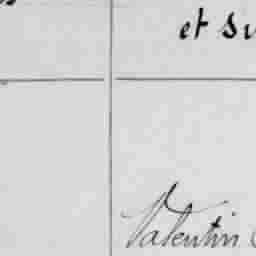 et su
Valentin